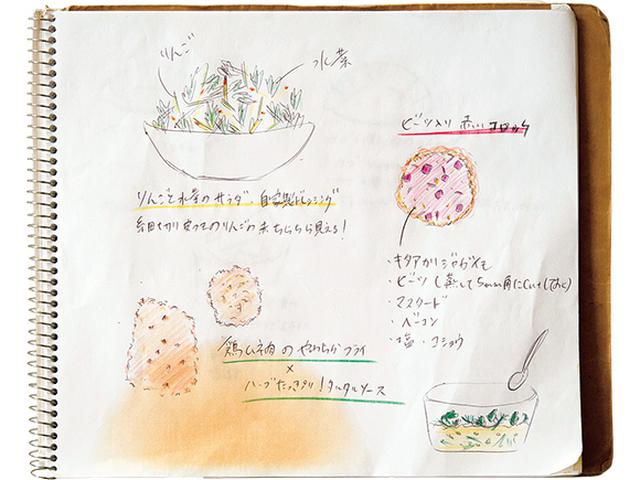 りんご
水菜
りんごと水菜のサラダ・自家製ドレッシング
細切り皮つきのりんごの赤ちらちら見える!
ビーツ入り 赤いコロッケ
・キタアカリジャガイモ
・ビーツ(蒸して5mm角にcutしておく)
・マスタード
・ベーコン
・塩・コショウ
鶏ムネ肉のやわらかフライ
×
ハーブたっぷり!タルタルソース